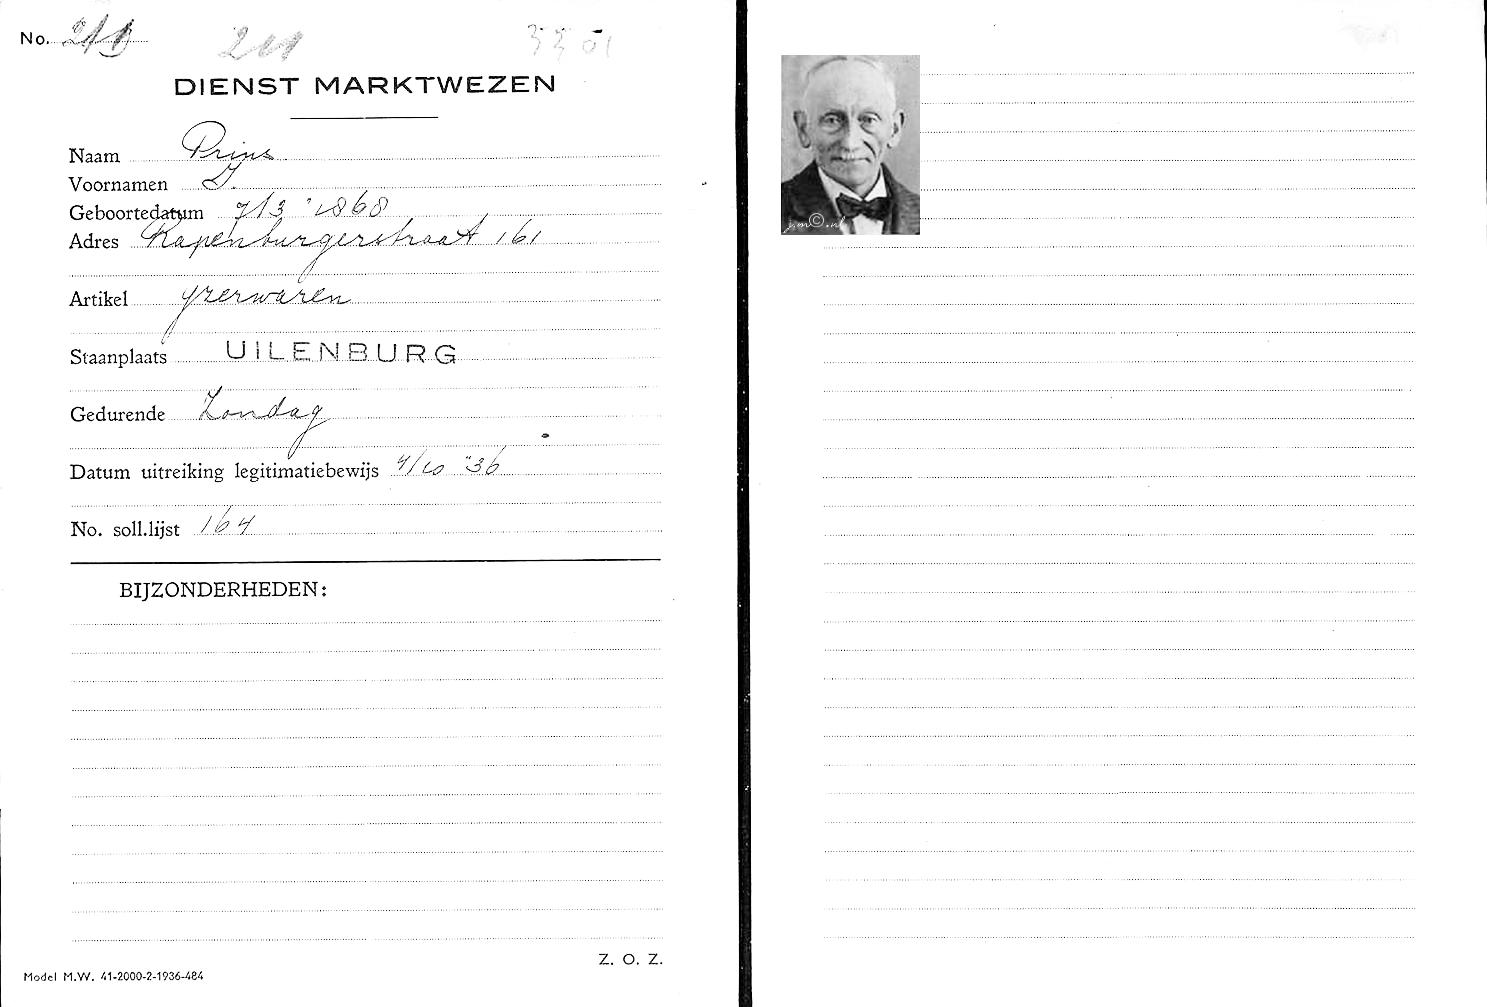 No. 211
211
DIENST MARKTWEZEN
Naam Prins
Voornamen I.
Geboortedatum 7/3 '1868
Adres Rapenburgerstraat 161
Artikel yzerwaren
Staanplaats UILENBURG
Gedurende Zondag
Datum uitreiking legitimatiebewijs 4/10 '36
No. soll.lijst 164
BIJZONDERHEDEN:
Z. O. Z.
Model M.W. 41-2000-2-1936-484
j.m©.nl